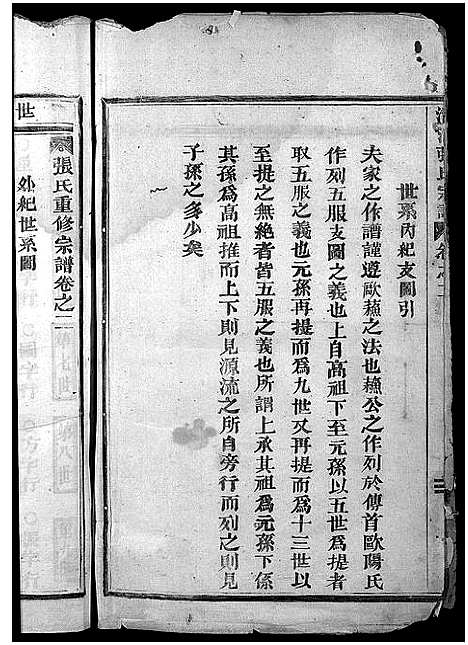 張氏宗譜 卷之二
世系內紀支圖引
夫家之作譜謹遵歐蘓之法也蘓公之作列於傳首歐陽氏
作列五服支圖之義也上自高祖下至元孫以五世為提者
取五服之義也元孫再提而為九世又再提而為十三世以
至提之無絶者皆五服之義也所謂上承其祖為元孫下係
其孫為高祖推而上下則見源流之所自旁行而列之則見
子孫之多少矣
張氏重修宗譜卷之二
外紀世系圖
世